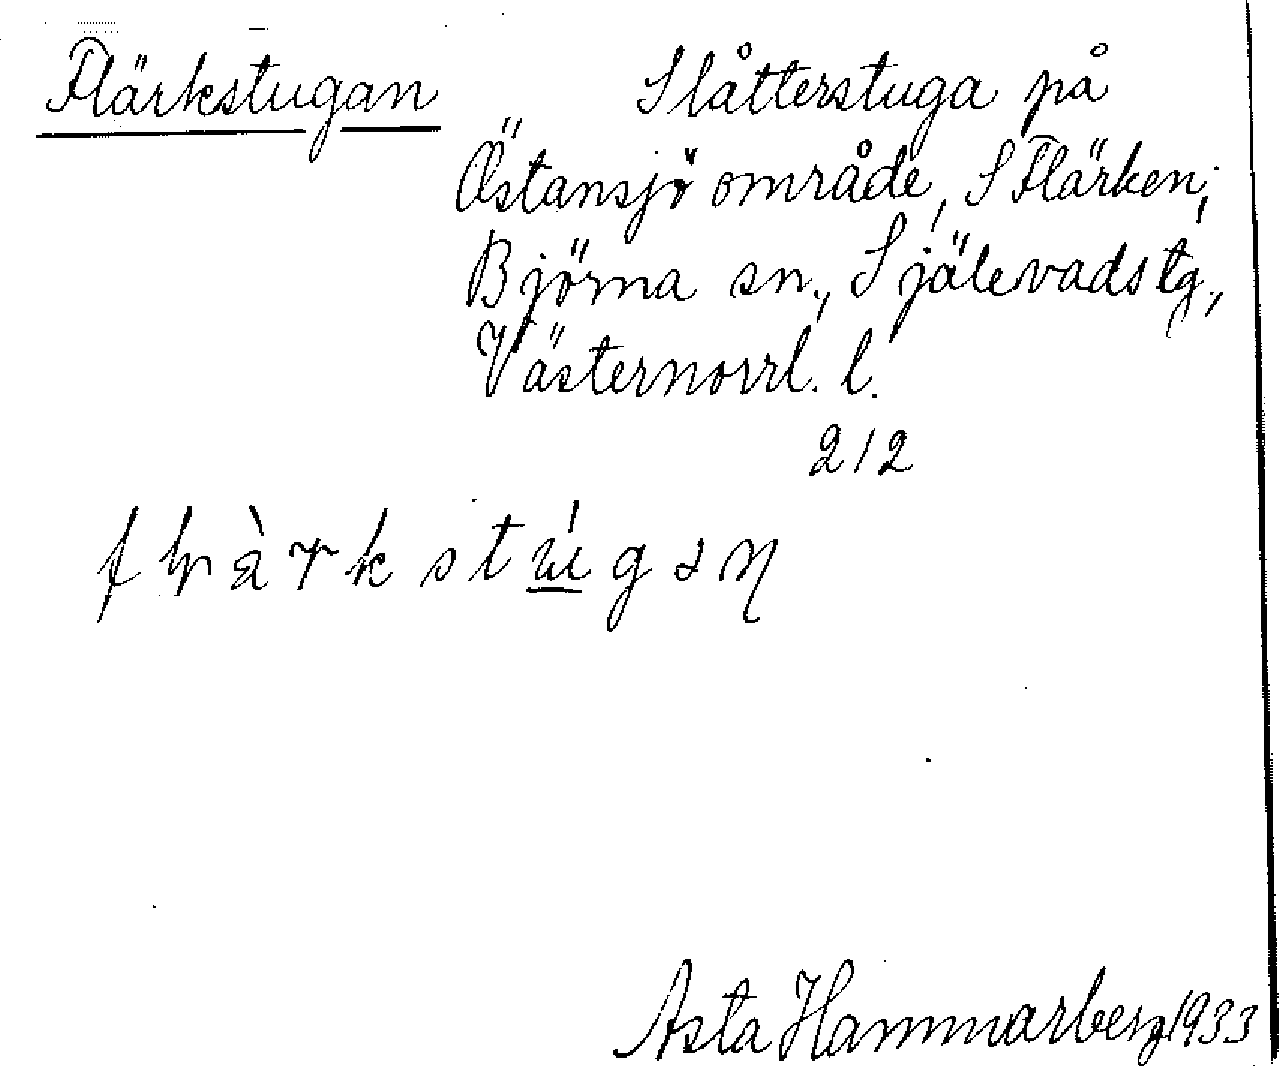 Flärkstugan Slåtterstuga på
Östansjö område, S Flärken;
Björna sn., Själevads tg.,
Västernorrl. l.
212
Asta Hammarberg 1933